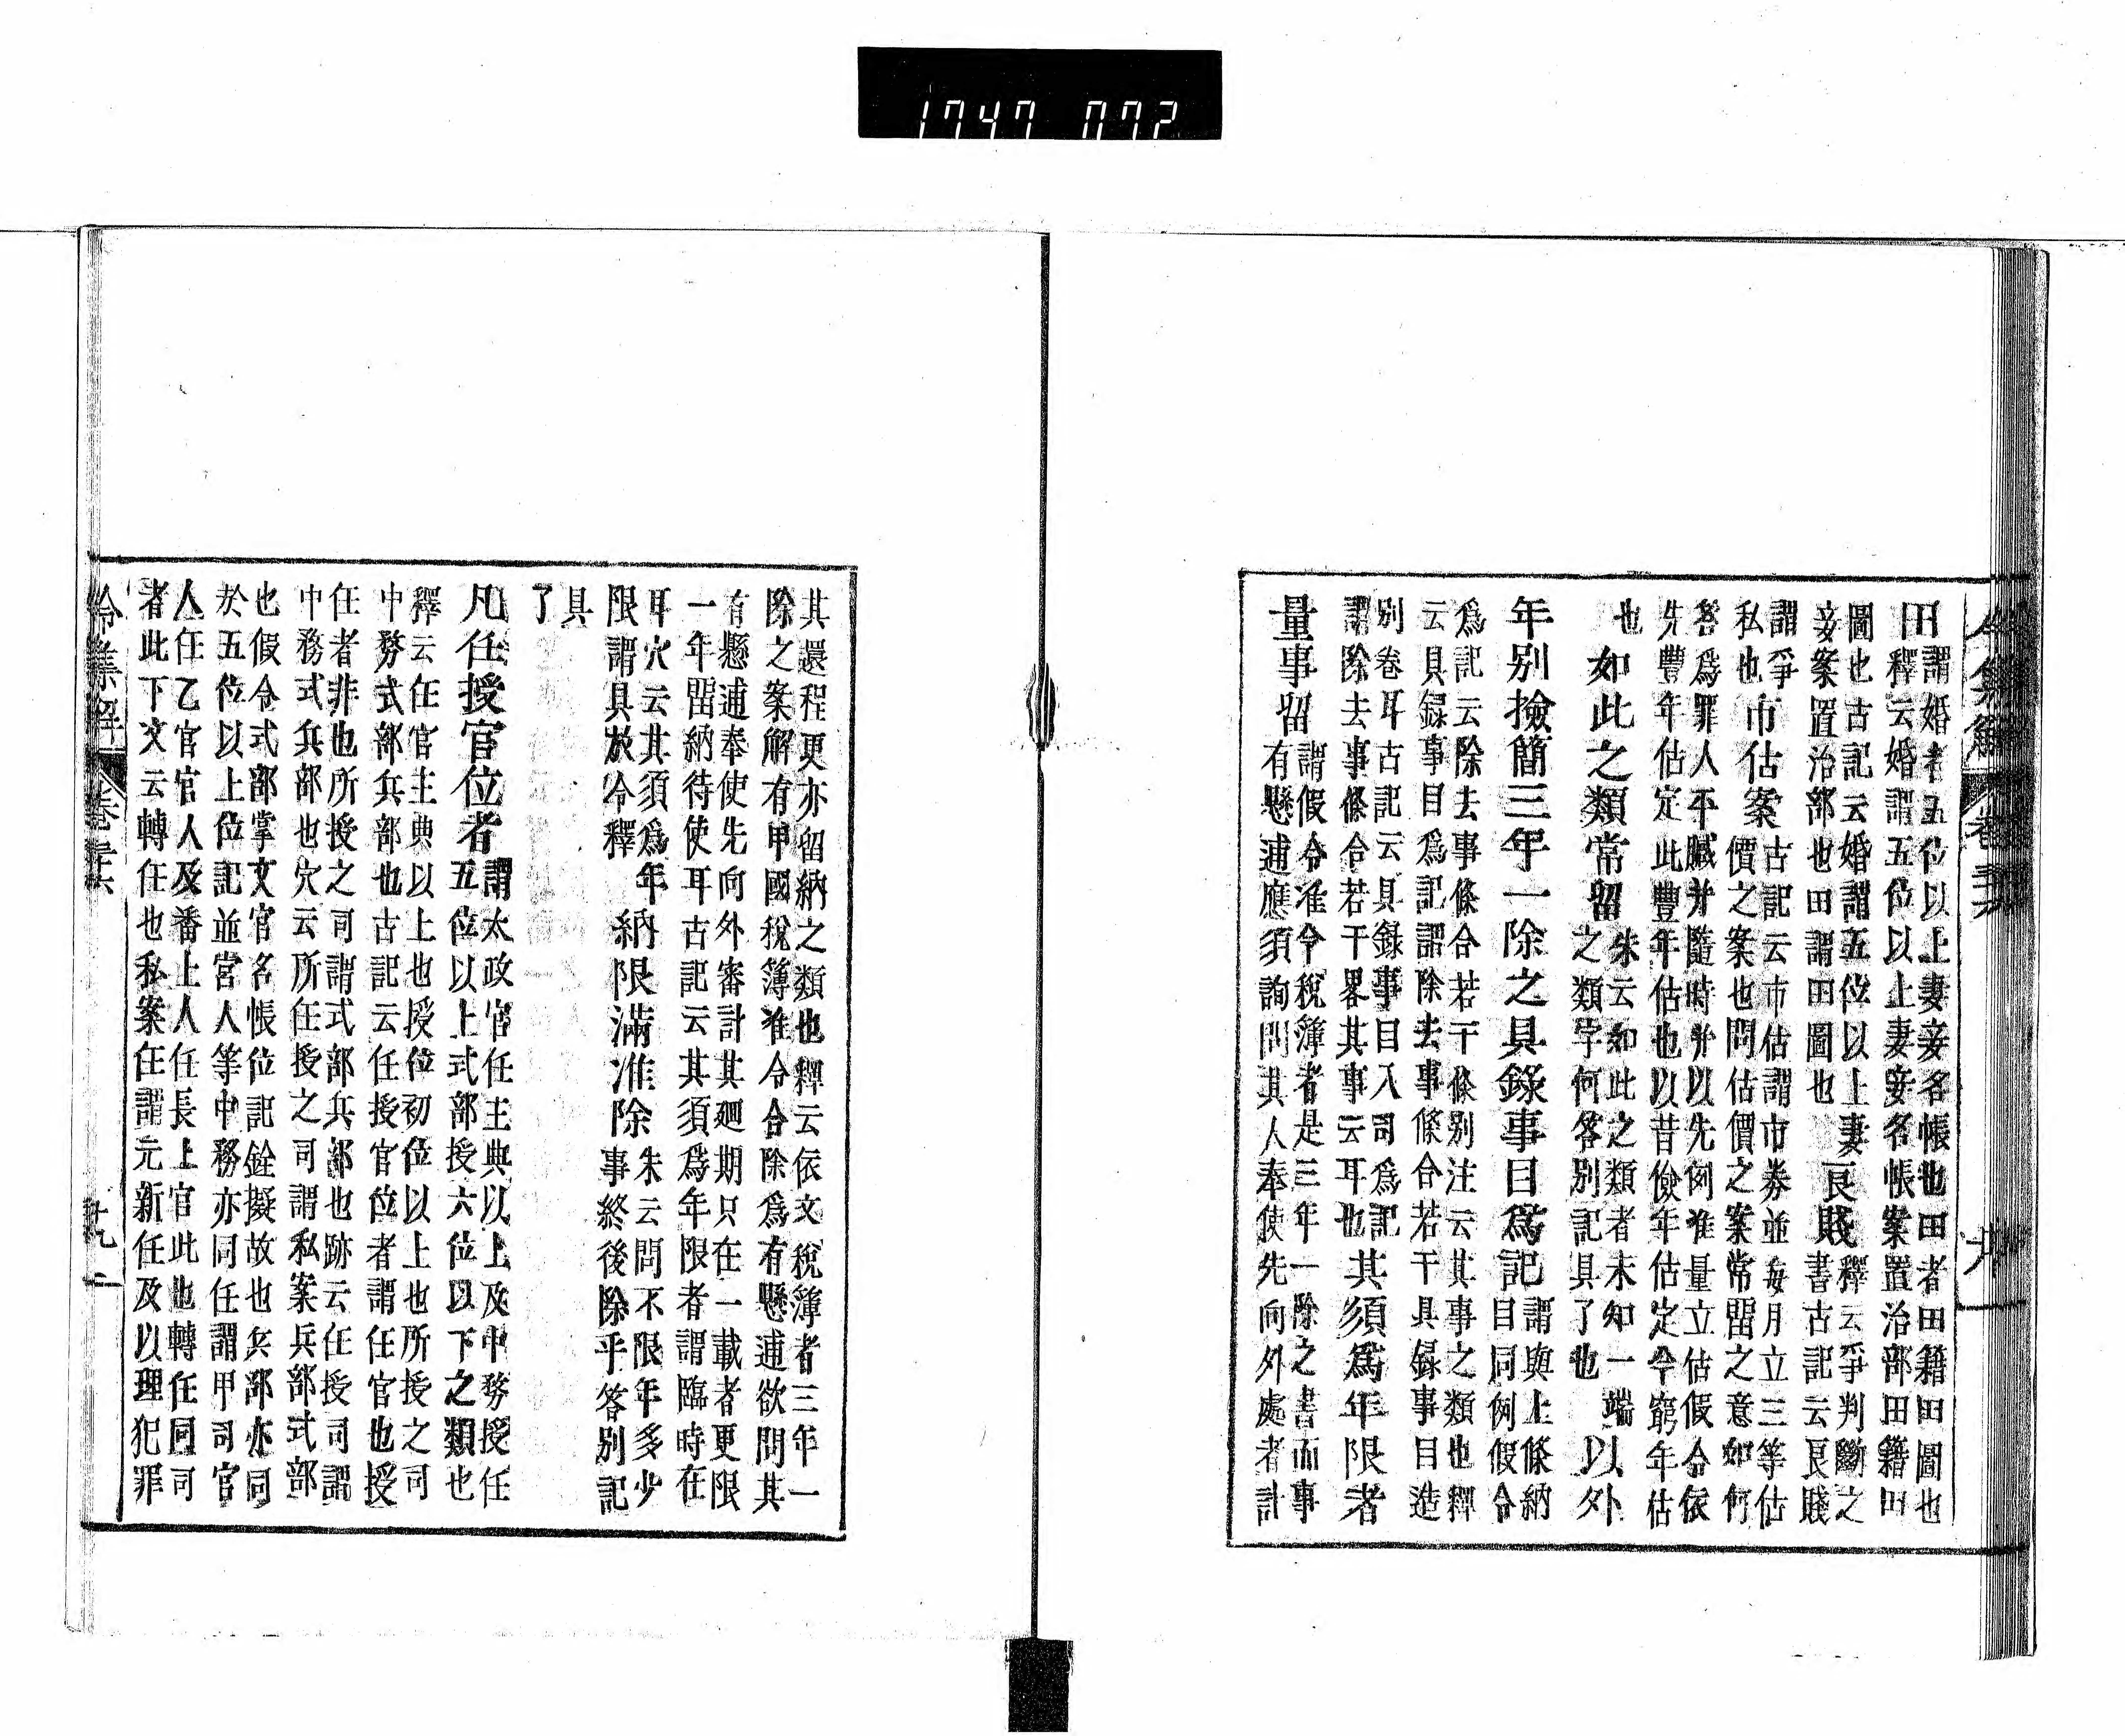 1747 072
令集解
田
謂婚者五位以上妻妾名帳也田者田籍田圖也
釋云婚謂五位以上妻妾名帳案置治部田籍田
圖也古記云婚謂五位以上妻
妾案置治部也田謂田圖也
良賤
釋云爭判斷之
書古記云良賤
謂爭
私也
市估案
古記云市估謂市券並每月立三等估
價之案也問估價之案常留之意如何
答爲罪人平贓并隨時并以先例准量立估假令依
先豐年估定此豐年估也以昔儉年估定今窮年估
也
如此之類常留
朱云如此之類者未知一端
之類學何答別記具了也
以外
年別撿簡三年一除之具錄事目爲記
謂與上條納
目同例假令
爲記云除去事條合若干條別注云其事之類也釋
云具録事目爲記謂除去事條合若干具録事目造
別卷耳古記云具錄事目入司爲記
謂除去事條合若干畧其事云耳也
其須爲年限者
量事留
謂假令准令稅簿者是三年一除之書而事
有懸逋應須詢問其人奉使先向外處者計
其還程更亦留納之類也釋云依文稅簿者三年一
除之案解有甲國稅簿准令合除爲有懸逋欲問其
有懸逋奉使先向外審計其廻期只在一載者更限
一年留納待使耳古記云其須爲年限者謂臨時在
耳穴云其須爲年
限謂具放令釋
納限滿准除
朱云問不限年多少
事終後除乎答別記
具
了
凡任授官位者
謂太政官任主典以上及中務授任
五位以上式部授六位以下之類也
釋云任官主典以上也授位初位以上也所授之司
中務式部兵部也古記云任授官位者謂任官也授
任者非也所授之司謂式部兵部也跡云任授司謂
中務式兵部也穴云所任授之司謂私案兵部式部
也假令式部掌文官名帳位記銓擬故也兵部亦同
於五位以上位記並宮人等中務亦同任謂甲司官
人任乙官官人及番上人任長上官此也轉任同司
者此下文云轉任也私案任謂元新任及以理犯罪
令集解